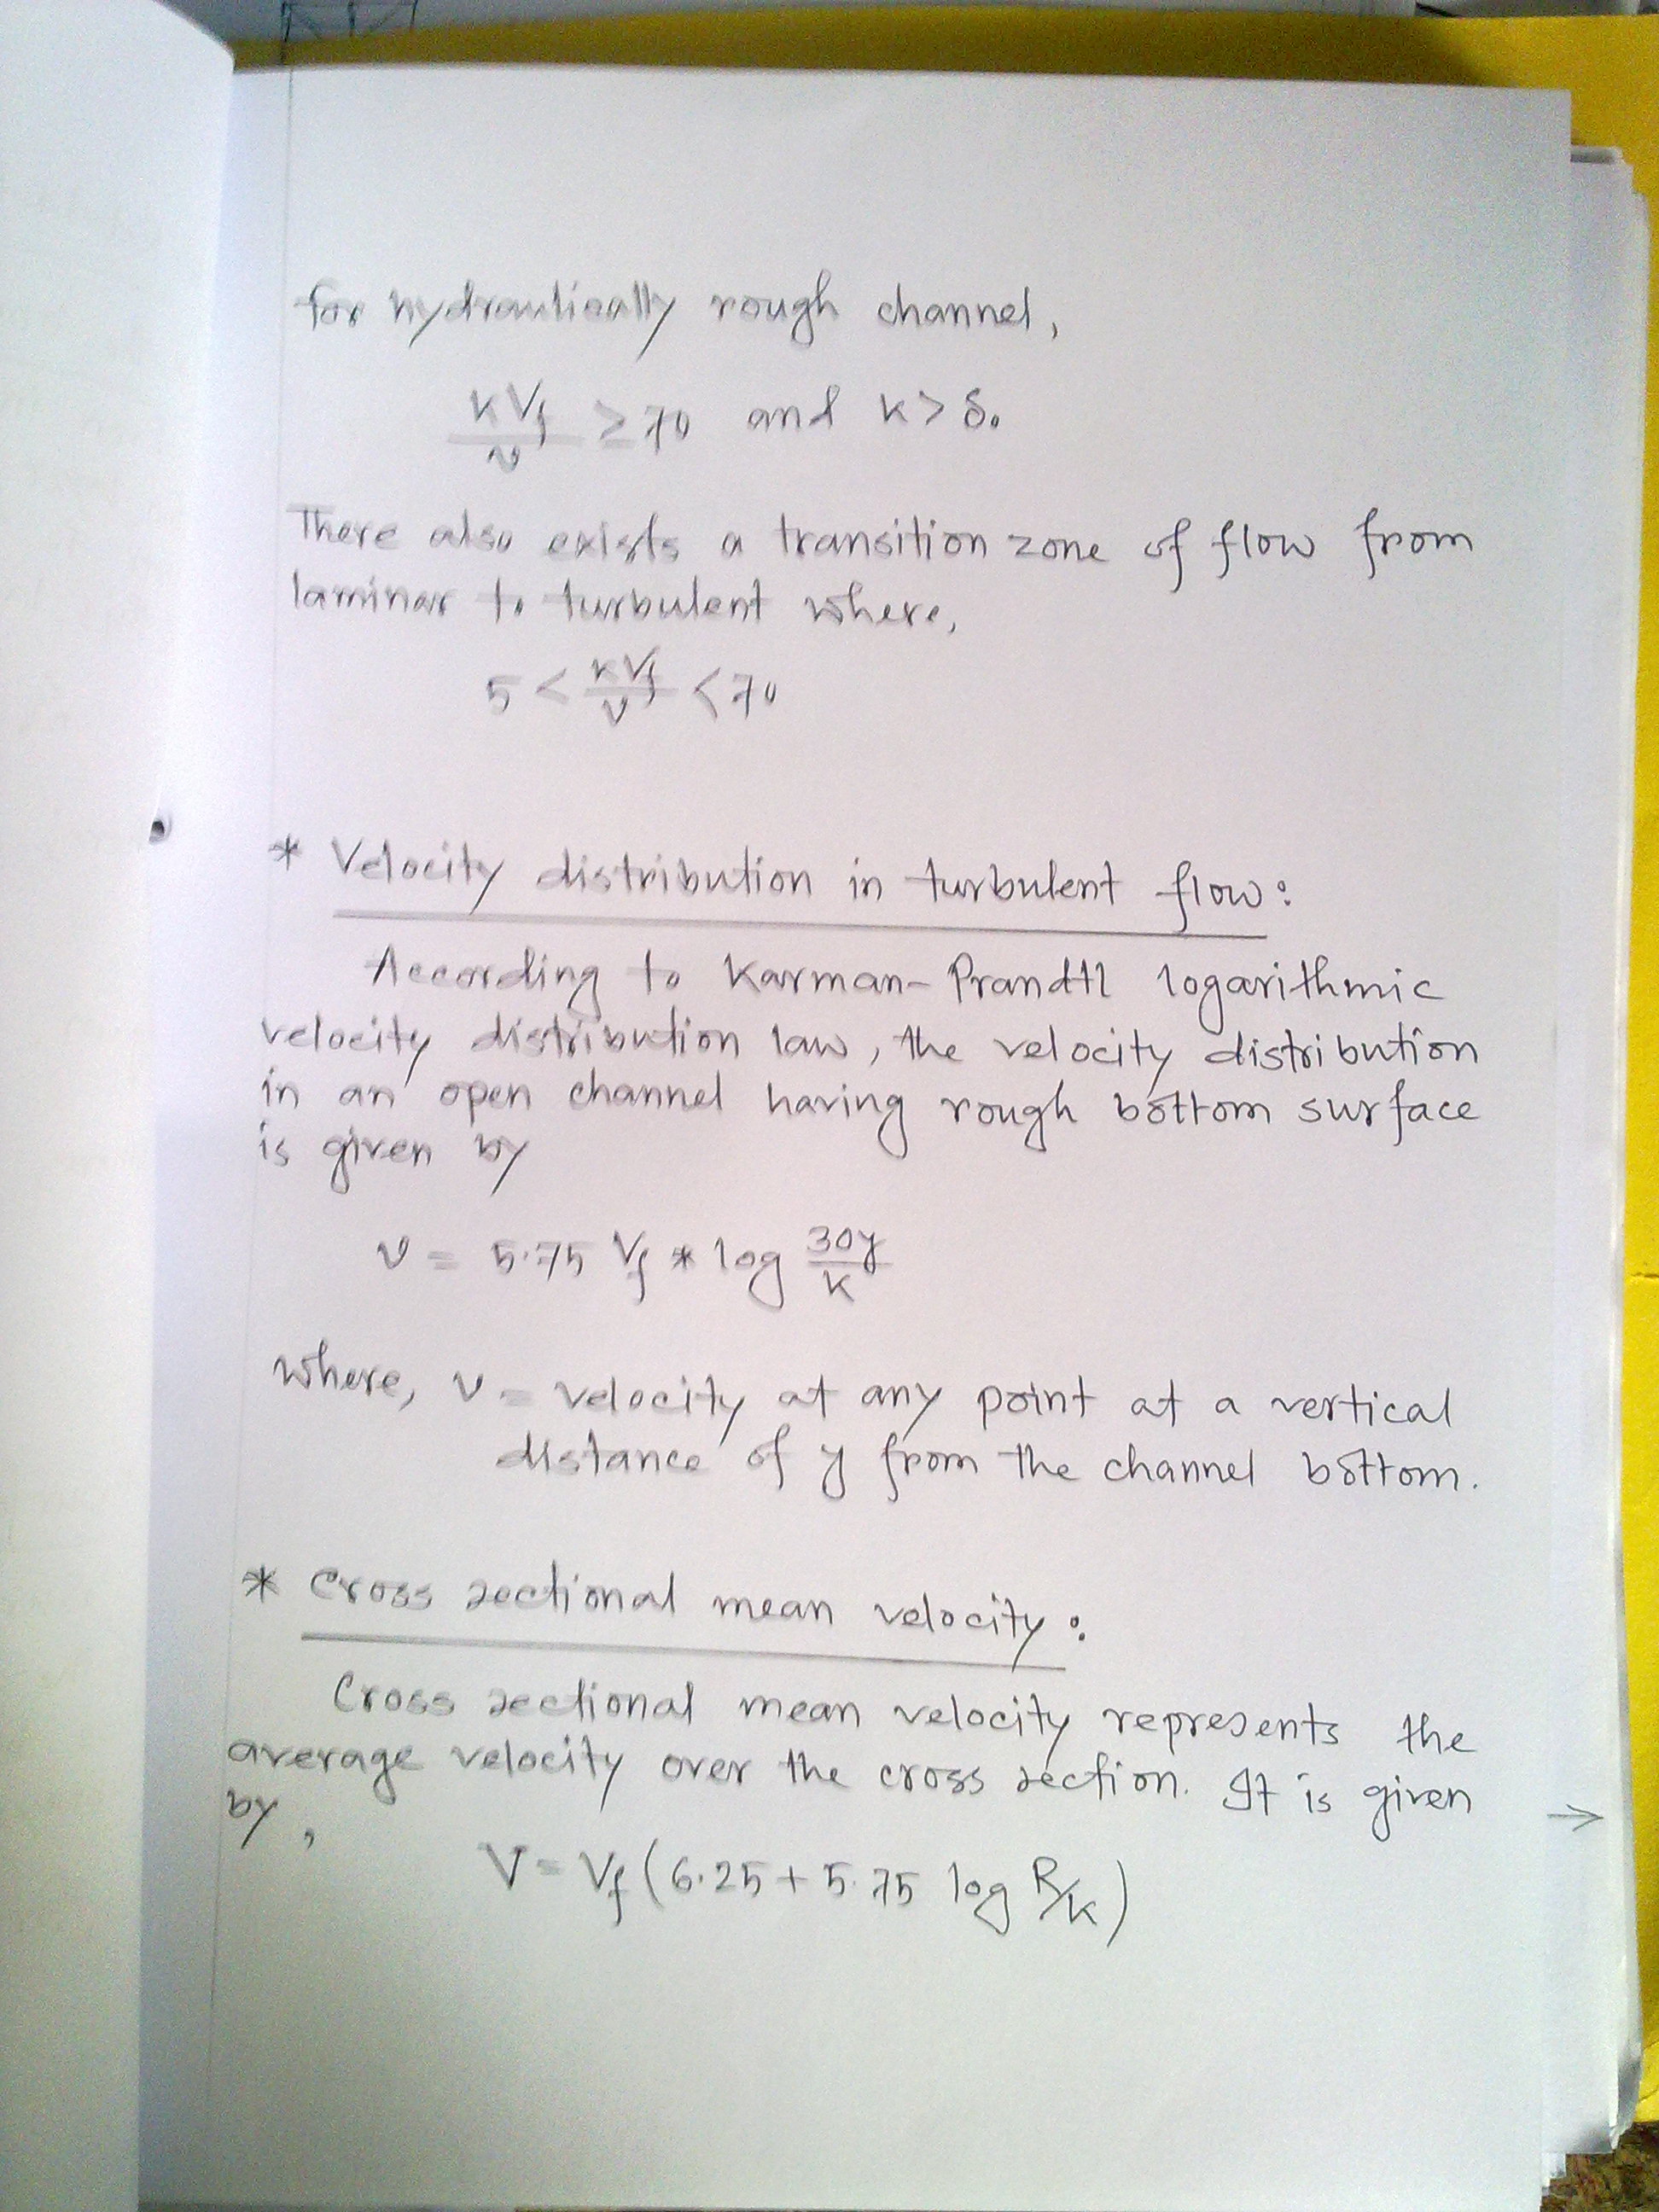 for hydraulically rough channel,
kVf/ν ≥ 70 and k > δ₀
There also exists a transition zone of flow from
laminar to turbulent where,
5 < kVf/ν < 70
* Velocity distribution in turbulent flow:
According to Karman-Prandtl logarithmic
velocity distribution law, the velocity distribution
in an open channel having rough bottom surface
is given by
v = 5.75 Vf * log 30y/k
where, v = velocity at any point at a vertical
distance of y from the channel bottom.
* Cross sectional mean velocity:
Cross sectional mean velocity represents the
average velocity over the cross section. It is given
by, →
V = Vf (6.25 + 5.75 log R/k)